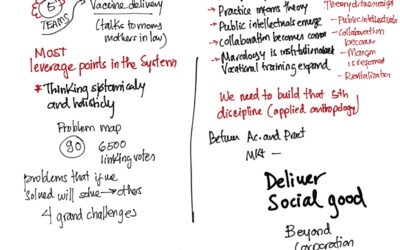 5
TEAMS
Vaccine delivery
(talks to moms
mothers in law)
MOST
leverage points in the System
* Thinking systemically
and holistically
Problem map
90
6500
linking votes
problems that if we
solved will solve → others
4 grand challenges
→ Practice informs theory
→ Public intellectuals emerge
→ Collaboration becomes
→ is institutionalized
Vocational training expand
Theory
- Public intellectuals
- Collaboration
become
- Margin
is reformed
- Revitalization
We need to build that 5th
discipline (applied anthropology)
Between Ac. and Pract
MKt —
Deliver
Social good
Beyond
Corporation